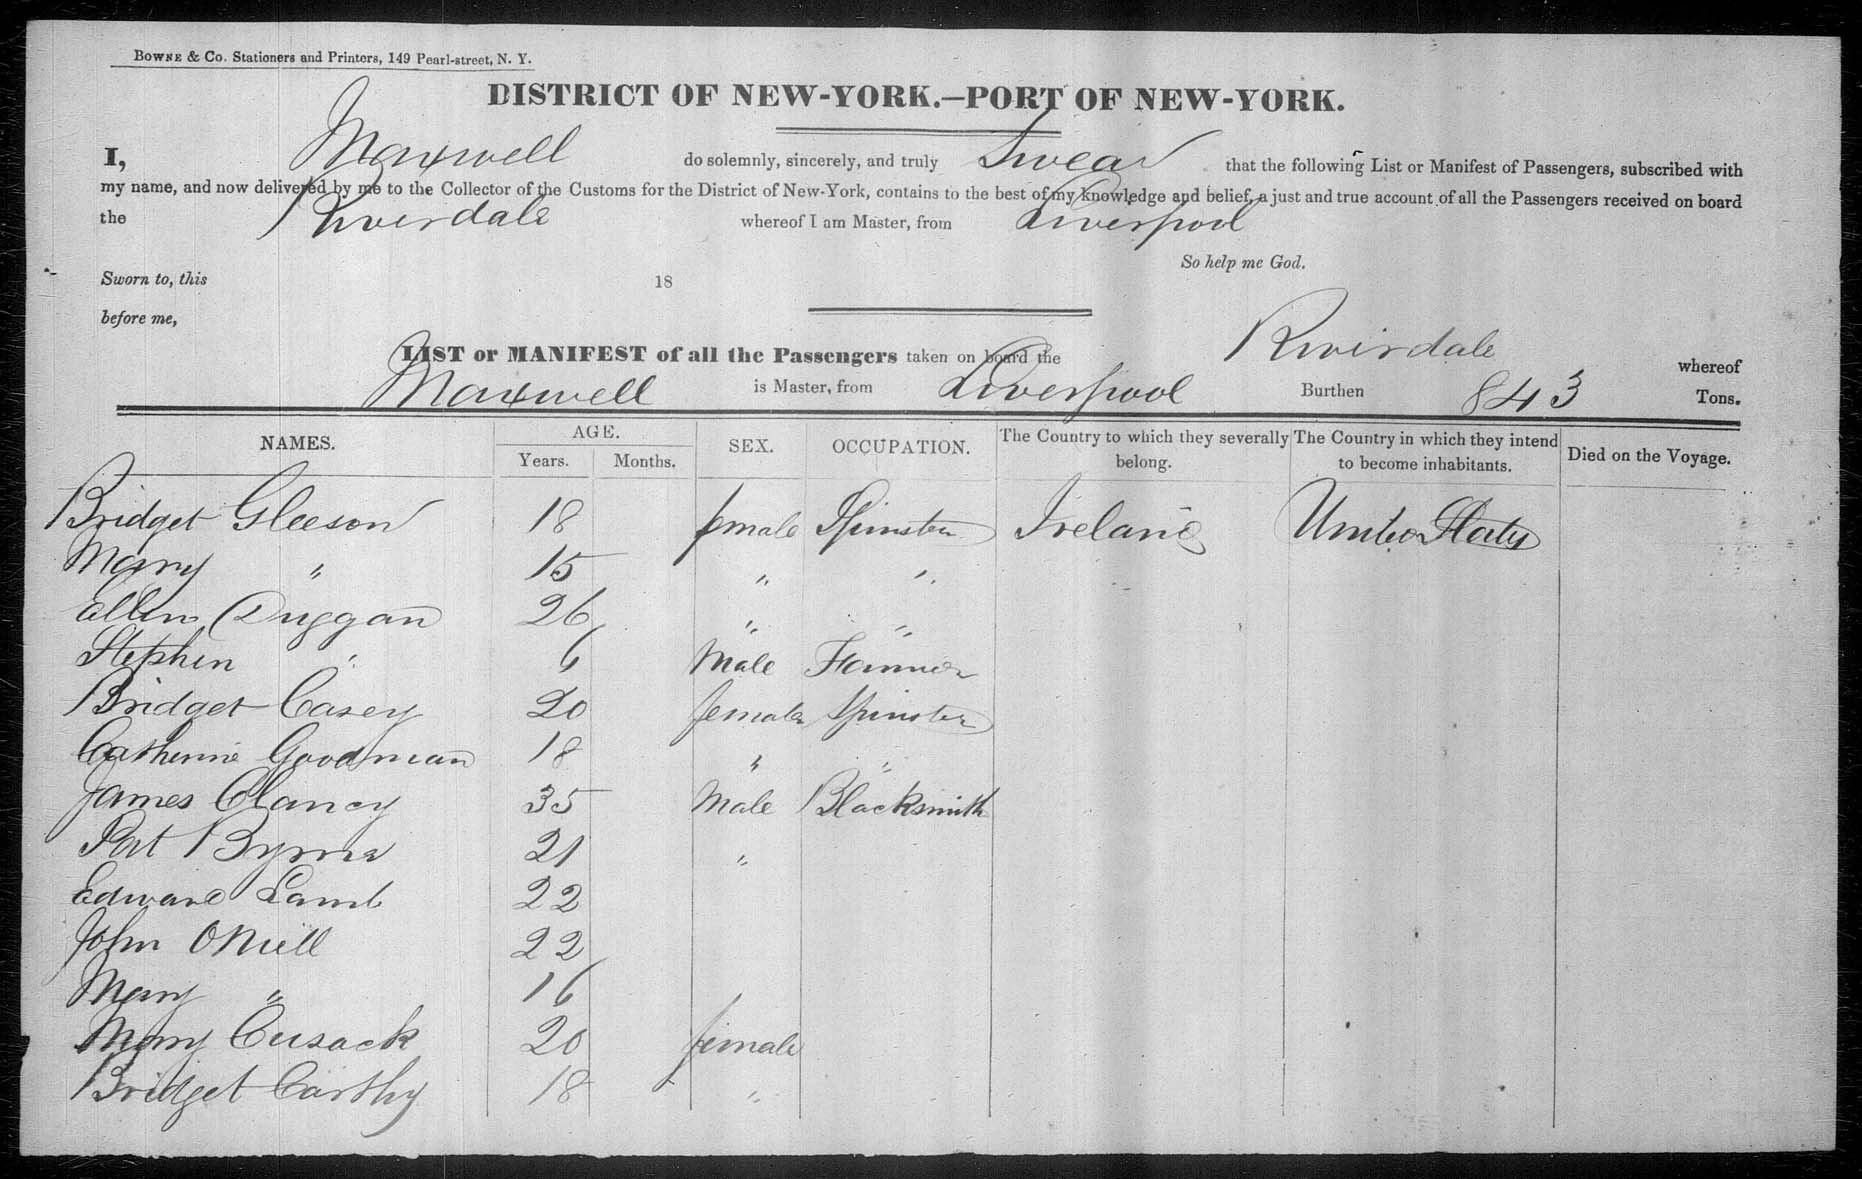 BOWNE & CO. Stationers and Printers, 149 Pearl-street, N. Y.
DISTRICT OF NEW-YORK.—PORT OF NEW-YORK.
I, Maxwell do solemnly, sincerely, and truly Swear that the following List or Manifest of Passengers, subscribed with
my name, and now delivered by me to the Collector of the Customs for the District of New-York, contains to the best of my knowledge and belief, a just and true account of all the Passengers received on board
the Riverdale whereof I am Master, from Liverpool
So help me God.
Sworn to, this 18
before me,
LIST or MANIFEST of all the Passengers taken on board the Rivirdale whereof
Maxwell is Master, from Liverpool Burthen 843 Tons.
NAMES. AGE. Years. Months. SEX. OCCUPATION. The Country to which they severally belong. The Country in which they intend to become inhabitants. Died on the Voyage.
Bridget Gleeson 18 female Spinster Ireland United States
Mary " 15 " "
Ellen Duggan 26 " "
Stephen " 6 Male Farmer
Bridget Casey 20 female Spinster
Catherine Goodman 18 " "
James Clancy 35 Male Blacksmith
Pat Byrne 21 "
Edward Lamb 22
John ONeill 22
Mary " 16
Mary Cusack 20 female
Bridget Carthy 18 "